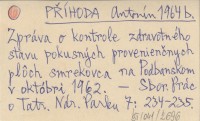 PŘÍHODA Antonín 1964 b.
Zpráva o kontrole zdravotného
stavu pokusných provenienčných
plôch smrekovca na Podbanskom
v októbri 1962. — Sbor. Prác
o Tatr. Nár. Parku 7: 234-235.